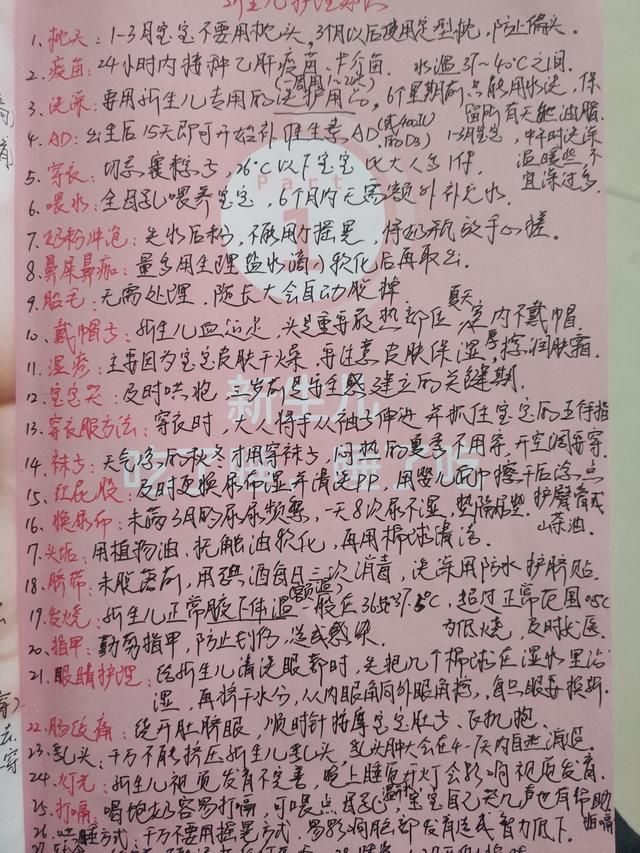 新生儿护理知识
1.枕头:1-3月宝宝不要用枕头,3个月以后使用定型枕,防止偏头.
2.疫苗:24小时内接种乙肝疫苗、卡介苗. 水温37-40℃之间.
(一周用1-2次)
3.洗澡:要用新生儿专用的洗护用品,6个星期前只能用水洗,保
留所有天然油脂.
4.AD:出生后15天即可开始补维生素AD(或400IU的D3) 1-3月宝宝,中午时洗澡
温暖些,不宜深过多.
5.穿衣:切忌裹粽子,26℃以下宝宝比大人多1件.
6.喂水:全母乳喂养宝宝,6个月内无需额外补充水.
7.奶粉冲泡:先水后粉,不能用力摇晃,将奶瓶放手心搓.
8.鼻屎鼻痂:量多用生理盐水滴,软化后再取出.
9.胎毛:无需处理,随长大会自动脱掉
夏天
10.戴帽子:新生儿血液足,头是重要散热部位 室内不戴帽
11.湿疹:主要因为宝宝皮肤干燥,要注意皮肤保湿,厚擦润肤霜.
12.宝宝哭:及时哄抱,三岁前是安全感建立的关键期.
13.穿衣服方法:穿衣时,大人将手从袖子伸进并抓住宝宝的五个手指
14.袜子:天气冷的秋冬才用穿袜子,闷热的夏季不用穿,开空调要穿
15.红屁股:及时更换尿布湿并清洗PP,用婴儿纸巾擦干后涂点
护臀膏或山茶油.
16.换尿布:未满3月的尿尿频繁,一天8次尿不湿,垫隔尿垫.
17.头垢:用植物油,抚触油软化,再用棉球清洁.
18.脐带:未脱落前,用碘酒每日三次消毒,洗澡用防水护脐贴.
(额温)
19.发烧:新生儿正常腋下体温一般在36至37.5℃,超过正常范围0.5℃
为低烧,及时就医.
20.指甲:勤剪指甲,防止划伤,造成感染.
21.眼睛护理:给新生儿清洗眼部时,先把几个棉球在温水里沾
湿,再挤干水分,从内眼角向外眼角擦,每只眼要换新.
22.肠绞痛:绕开肚脐眼,顺时针按摩宝宝肚子、飞机抱.
23.乳头:千万不能挤压新生儿乳头,乳头肿大会在4-6天内自然消退.
24.灯光:新生儿视觉发育不完善,晚上睡觉开灯会影响视后发育.
25.打嗝:喝饱奶容易打嗝,可喂点母乳(温水),宝宝自己哭几声也有帮助
26.哄睡方式:千万不要用摇晃方式,易影响脑部发育造成智力低下.
新生儿
Part
1